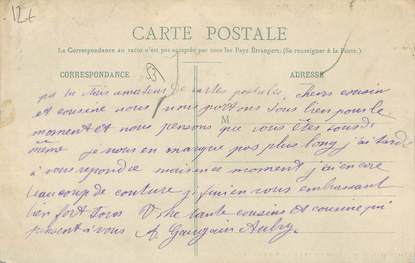 12f
CARTE POSTALE
La Correspondance au recto n'est pas acceptée par tous les Pays Étrangers. (Se renseigner à la Poste.)
CORRESPONDANCE
ADRESSE
M
amateurs de cartes postales chers cousin
et cousine nous nous portons tous bien pour le
moment et nous pensons que vous êtes tous de
même je nous en marque pas plus long j'ai tardé
à vous repondre mais en ce moment j'ai encore
beaucoup de couture je fini en vous embrassant
bien fort tous Votre tante cousins et cousine qui
pensent à vous A Gauguain Aubry